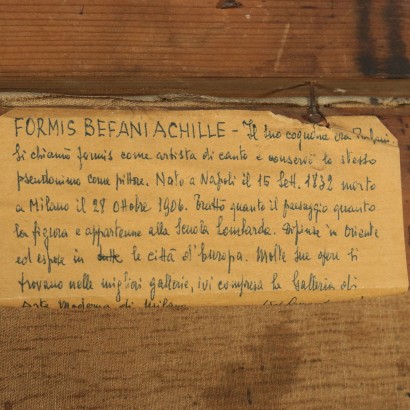 FORMIS BEFANI ACHILLE - Il suo cognome era Befani.
Si chiamò Formis come artista di canto e conservò lo stesso
pseudonimo come pittore. Nato a Napoli il 15 Sett. 1832 morto
a Milano il 28 Ottobre 1906. Trattò quanto il paesaggio quanto
la figura e appartenne alla Scuola Lombarda. Dipinse in Oriente
ed espose in tutte le città d'Europa. Molte sue opere si
trovano nelle migliori gallerie, ivi compresa la Galleria di
Arte Moderna di Milano